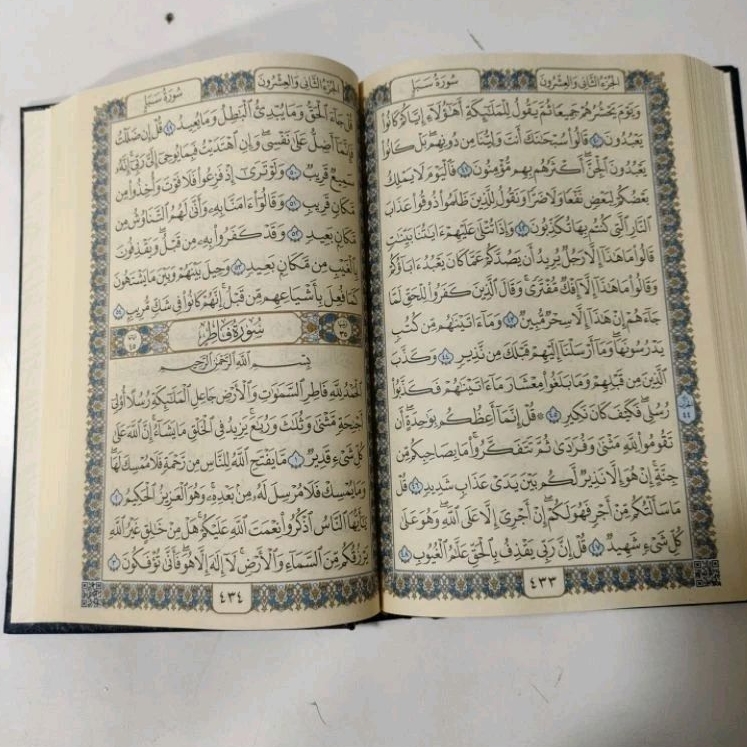 الجزء الثاني والعشرون
سورة سبإ
وَيَوْمَ يَحْشُرُهُمْ جَمِيعًا ثُمَّ يَقُولُ لِلْمَلَٰٓئِكَةِ أَهَٰٓؤُلَآءِ إِيَّاكُمْ كَانُوا۟
يَعْبُدُونَ ٤٠ قَالُوا۟ سُبْحَٰنَكَ أَنتَ وَلِيُّنَا مِن دُونِهِم بَلْ كَانُوا۟
يَعْبُدُونَ ٱلْجِنَّ أَكْثَرُهُم بِهِم مُّؤْمِنُونَ ٤١ فَٱلْيَوْمَ لَا يَمْلِكُ
بَعْضُكُمْ لِبَعْضٍ نَّفْعًا وَلَا ضَرًّا وَنَقُولُ لِلَّذِينَ ظَلَمُوا۟ ذُوقُوا۟ عَذَابَ
ٱلنَّارِ ٱلَّتِى كُنتُم بِهَا تُكَذِّبُونَ ٤٢ وَإِذَا تُتْلَىٰ عَلَيْهِمْ ءَايَٰتُنَا بَيِّنَٰتٍ
قَالُوا۟ مَا هَٰذَآ إِلَّا رَجُلٌ يُرِيدُ أَن يَصُدَّكُمْ عَمَّا كَانَ يَعْبُدُ ءَابَآؤُكُمْ
وَقَالُوا۟ مَا هَٰذَآ إِلَّآ إِفْكٌ مُّفْتَرًى وَقَالَ ٱلَّذِينَ كَفَرُوا۟ لِلْحَقِّ لَمَّا
جَآءَهُمْ إِنْ هَٰذَآ إِلَّا سِحْرٌ مُّبِينٌ ٤٣ وَمَآ ءَاتَيْنَٰهُم مِّن كُتُبٍ
يَدْرُسُونَهَا وَمَآ أَرْسَلْنَآ إِلَيْهِمْ قَبْلَكَ مِن نَّذِيرٍ ٤٤ وَكَذَّبَ
ٱلَّذِينَ مِن قَبْلِهِمْ وَمَا بَلَغُوا۟ مِعْشَارَ مَآ ءَاتَيْنَٰهُمْ فَكَذَّبُوا۟
رُسُلِى فَكَيْفَ كَانَ نَكِيرِ ٤٥ ۞ قُلْ إِنَّمَآ أَعِظُكُم بِوَٰحِدَةٍ أَن
تَقُومُوا۟ لِلَّهِ مَثْنَىٰ وَفُرَٰدَىٰ ثُمَّ تَتَفَكَّرُوا۟ مَا بِصَاحِبِكُم مِّن
جِنَّةٍ إِنْ هُوَ إِلَّا نَذِيرٌ لَّكُم بَيْنَ يَدَىْ عَذَابٍ شَدِيدٍ ٤٦ قُلْ
مَا سَأَلْتُكُم مِّنْ أَجْرٍ فَهُوَ لَكُمْ إِنْ أَجْرِىَ إِلَّا عَلَى ٱللَّهِ وَهُوَ عَلَىٰ
كُلِّ شَىْءٍ شَهِيدٌ ٤٧ قُلْ إِنَّ رَبِّى يَقْذِفُ بِٱلْحَقِّ عَلَّٰمُ ٱلْغُيُوبِ ٤٨
٤٣٣
الجزء الثاني والعشرون
سورة سبإ
قُلْ جَآءَ ٱلْحَقُّ وَمَا يُبْدِئُ ٱلْبَٰطِلُ وَمَا يُعِيدُ ٤٩ قُلْ إِن ضَلَلْتُ
فَإِنَّمَآ أَضِلُّ عَلَىٰ نَفْسِى وَإِنِ ٱهْتَدَيْتُ فَبِمَا يُوحِىٓ إِلَىَّ رَبِّىٓ إِنَّهُۥ
سَمِيعٌ قَرِيبٌ ٥٠ وَلَوْ تَرَىٰٓ إِذْ فَزِعُوا۟ فَلَا فَوْتَ وَأُخِذُوا۟ مِن
مَّكَانٍ قَرِيبٍ ٥١ وَقَالُوٓا۟ ءَامَنَّا بِهِۦ وَأَنَّىٰ لَهُمُ ٱلتَّنَاوُشُ مِن
مَّكَانٍۭ بَعِيدٍ ٥٢ وَقَدْ كَفَرُوا۟ بِهِۦ مِن قَبْلُ وَيَقْذِفُونَ
بِٱلْغَيْبِ مِن مَّكَانٍۭ بَعِيدٍ ٥٣ وَحِيلَ بَيْنَهُمْ وَبَيْنَ مَا يَشْتَهُونَ
كَمَا فُعِلَ بِأَشْيَاعِهِم مِّن قَبْلُ إِنَّهُمْ كَانُوا۟ فِى شَكٍّ مُّرِيبٍۭ ٥٤
سُورَةُ فَاطِرٍ
بِسْمِ ٱللَّهِ ٱلرَّحْمَٰنِ ٱلرَّحِيمِ
ٱلْحَمْدُ لِلَّهِ فَاطِرِ ٱلسَّمَٰوَٰتِ وَٱلْأَرْضِ جَاعِلِ ٱلْمَلَٰٓئِكَةِ رُسُلًا أُو۟لِىٓ
أَجْنِحَةٍ مَّثْنَىٰ وَثُلَٰثَ وَرُبَٰعَ يَزِيدُ فِى ٱلْخَلْقِ مَا يَشَآءُ إِنَّ ٱللَّهَ عَلَىٰ
كُلِّ شَىْءٍ قَدِيرٌ ١ مَّا يَفْتَحِ ٱللَّهُ لِلنَّاسِ مِن رَّحْمَةٍ فَلَا مُمْسِكَ لَهَا
وَمَا يُمْسِكْ فَلَا مُرْسِلَ لَهُۥ مِنۢ بَعْدِهِۦ وَهُوَ ٱلْعَزِيزُ ٱلْحَكِيمُ ٢
يَٰٓأَيُّهَا ٱلنَّاسُ ٱذْكُرُوا۟ نِعْمَتَ ٱللَّهِ عَلَيْكُمْ هَلْ مِنْ خَٰلِقٍ غَيْرُ ٱللَّهِ
يَرْزُقُكُم مِّنَ ٱلسَّمَآءِ وَٱلْأَرْضِ لَآ إِلَٰهَ إِلَّا هُوَ فَأَنَّىٰ تُؤْفَكُونَ ٣
٤٣٤